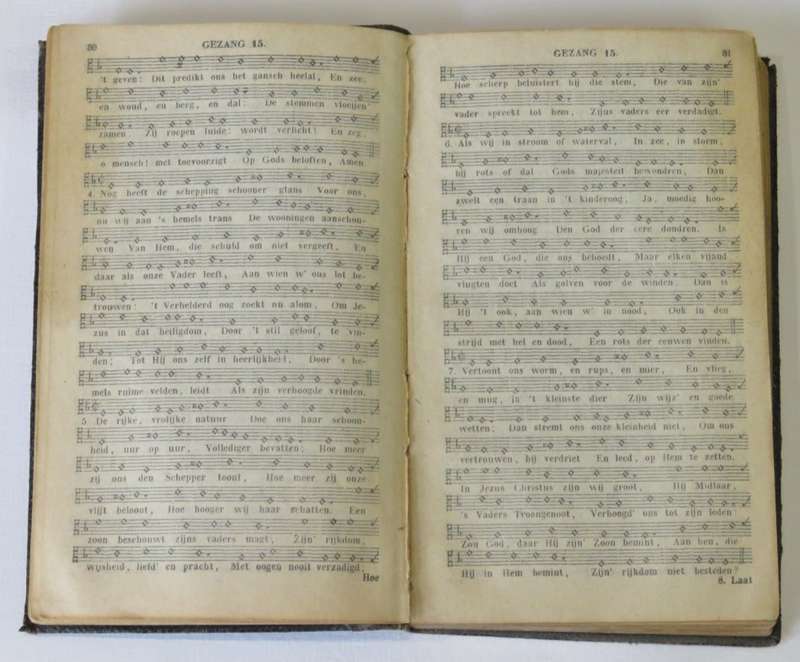 80
GEZANG 15.
't geven: Dit predikt ons het gansch heelal, En zee,
en woud, en berg, en dal: De stemmen vloeijen
zamen Zij roepen luide: wordt verlicht! En zeg,
o mensch! met toevoorzigt Op Gods beloften, Amen
4. Nog heeft de schepping schooner glans Voor ons,
nu wij aan 's hemels trans De wooningen aanschou-
wen Van Hem, die schuld om niet vergeeft, En
daar als onze Vader leeft, Aan wien w' ons tot be-
trouwen: 't Verhelderd oog zoekt nu alom, Om Je-
zus in dat heiligdom, Door 't stil geloof, te vin-
den; Tot Hij ons zelf in heerlijkheid, Door 's he-
mels ruime velden, leidt Als zijn verhoogde vrinden.
5 De rijke, vrolijke natuur Doe ons haar schoon-
heid, uur op uur, Vollediger bevatten: Hoe meer
zij ons den Schepper toont, Hoe meer zij onze
vlijt beloont, Hoe hooger wij haar schatten. Een
zoon beschouwt zijns vaders magt, Zijn' rijkdom,
wijsheid, liefd' en pracht, Met oogen nooit verzadigd,
Hoe
GEZANG 15.
81
Hoe scherp beluistert hij die stem, Die van zijn'
vader spreekt tot hem, Zijns vaders eer verdadigt.
6. Als wij in stroom of waterval, In zee, in storm,
bij rots of dal Gods majesteit bewondren, Dan
zwelt een traan in 't kinderoog, Ja, moedig hoo-
ren wij omhoog Den God der eere dondren. Is
Hij een God, die ons behoedt, Maar elken vijand
vlugten doet Als golven voor de winden. Dan is
Hij 't ook, aan wien w' in nood, Ook in den
strijd met hel en dood, Een rots der eeuwen vinden.
7 Vertoont ons worm, en rups, en mier, En vlieg,
en mug, in 't kleinste dier Zijn wijz' en goede
wetten: Dan stremt ons onze kleinheid niet, Om ons
vertrouwen, bij verdriet En leed, op Hem te zetten.
In Jezus Christus zijn wij groot, Hij Midlaar,
's Vaders Troongenoot, Verhoogd' ons tot zijn leden
Zou God, daar Hij zijn' Zoon bemint, Aan hen, die
Hij in Hem bemint, Zijn' rijkdom niet besteden?
8. Laat